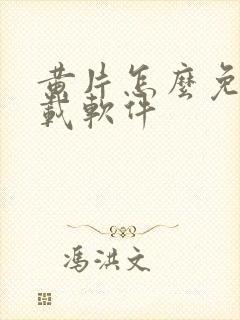 黄片怎麼免
載軟件
馮洪文